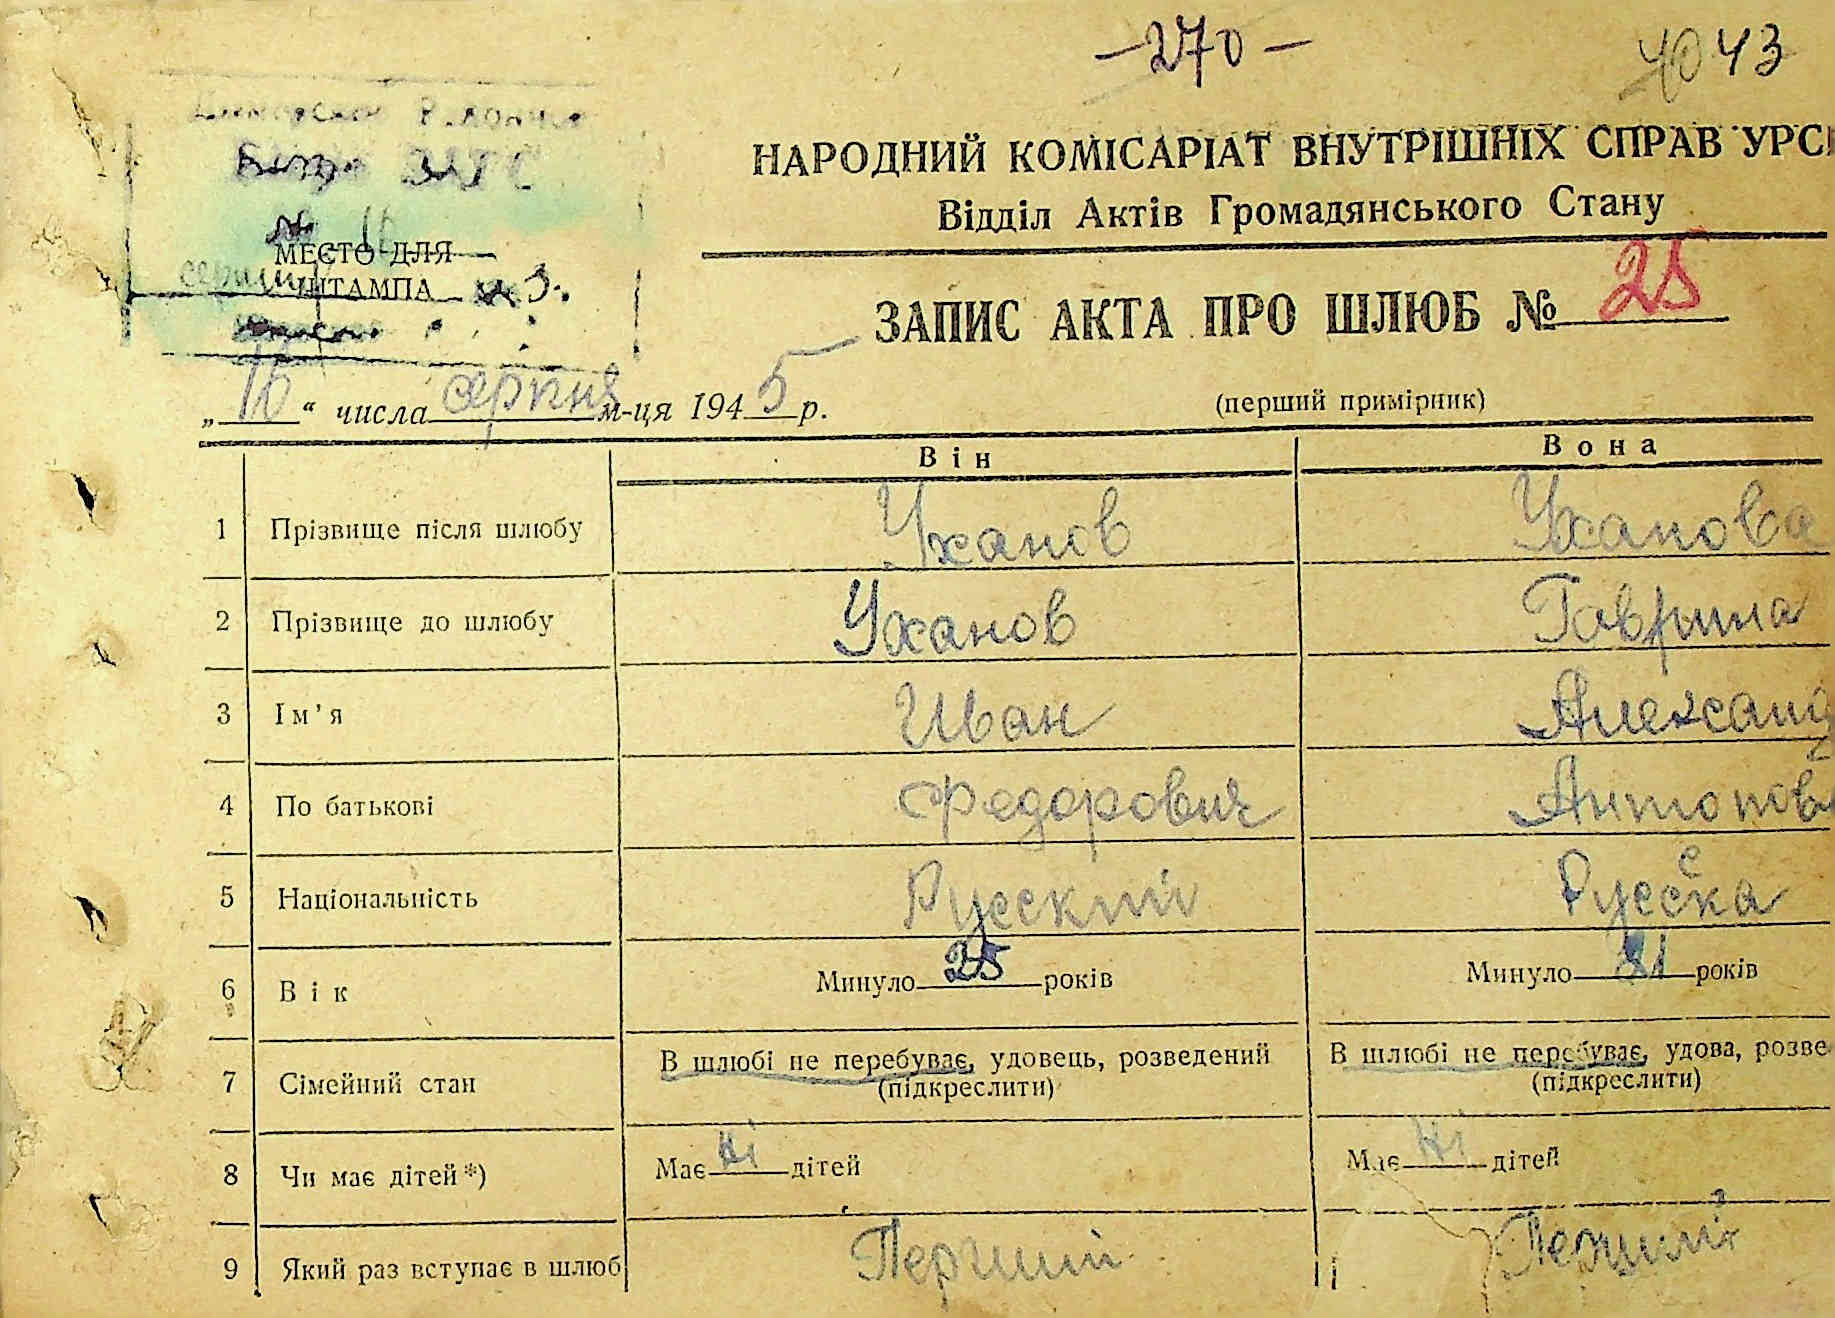 -270-
40 43
НАРОДНИЙ КОМІСАРІАТ ВНУТРІШНІХ СПРАВ УРС
Відділ Актів Громадянського Стану
№ 16
МЕСТО ДЛЯ
ШТАМПА
ЗАПИС АКТА ПРО ШЛЮБ № 25
„16“ числа серпня м-ця 1945 р.
(перший примірник)
Він Вона
1 Прізвище після шлюбу Уханов Уханова
2 Прізвище до шлюбу Уханов Гаврина
3 Ім'я Иван Александ
4 По батькові Федорович Антонов
5 Національність Русский Русска
6 Вік Минуло 25 років Минуло 21 років
7 Сімейний стан В шлюбі не перебуває, удовець, розведений В шлюбі не перебуває, удова, розве
(підкреслити) (підкреслити)
8 Чи має дітей*) Має ні дітей Має ні дітей
9 Який раз вступає в шлюб Перший Перший